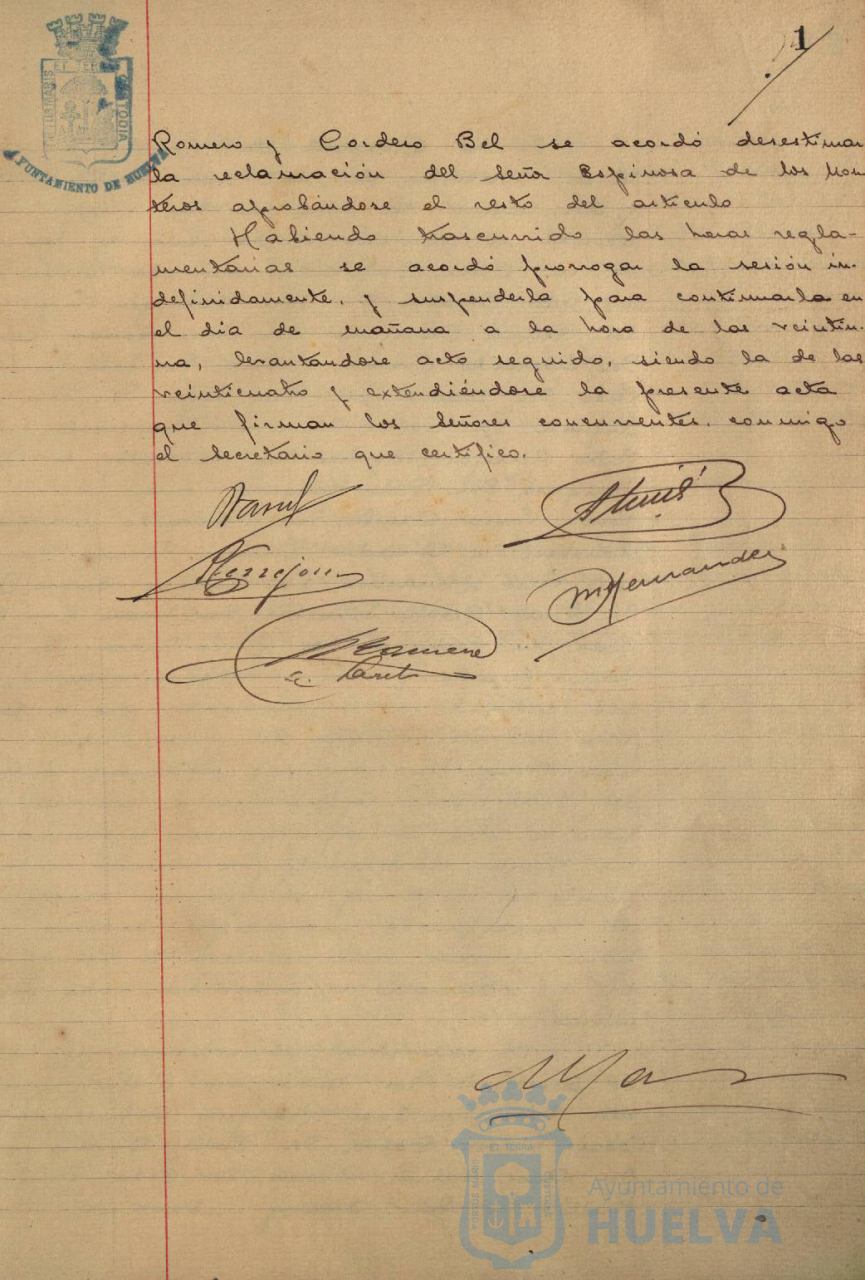 1
PORTUS MARIS ET TERRÆ CUSTODIA
AYUNTAMIENTO DE HUELVA
Romero y Cordero Bel se acordó desestimar
la reclamación del señor Espinosa de los Mon
teros aprobándose el resto del artículo
Habiendo trascurrido las horas regla-
mentarias se acordó prorrogar la sesión in-
definidamente, y suspenderla para continuarla en
el dia de mañana a la hora de las veintiu-
na, levantándose acto seguido, siendo la de las
veinticuatro y extendiéndose la presente acta
que firman los Señores concurrentes, conmigo
el secretario que certifico.
Terrejon
M Hernandez
Ayuntamiento de
HUELVA